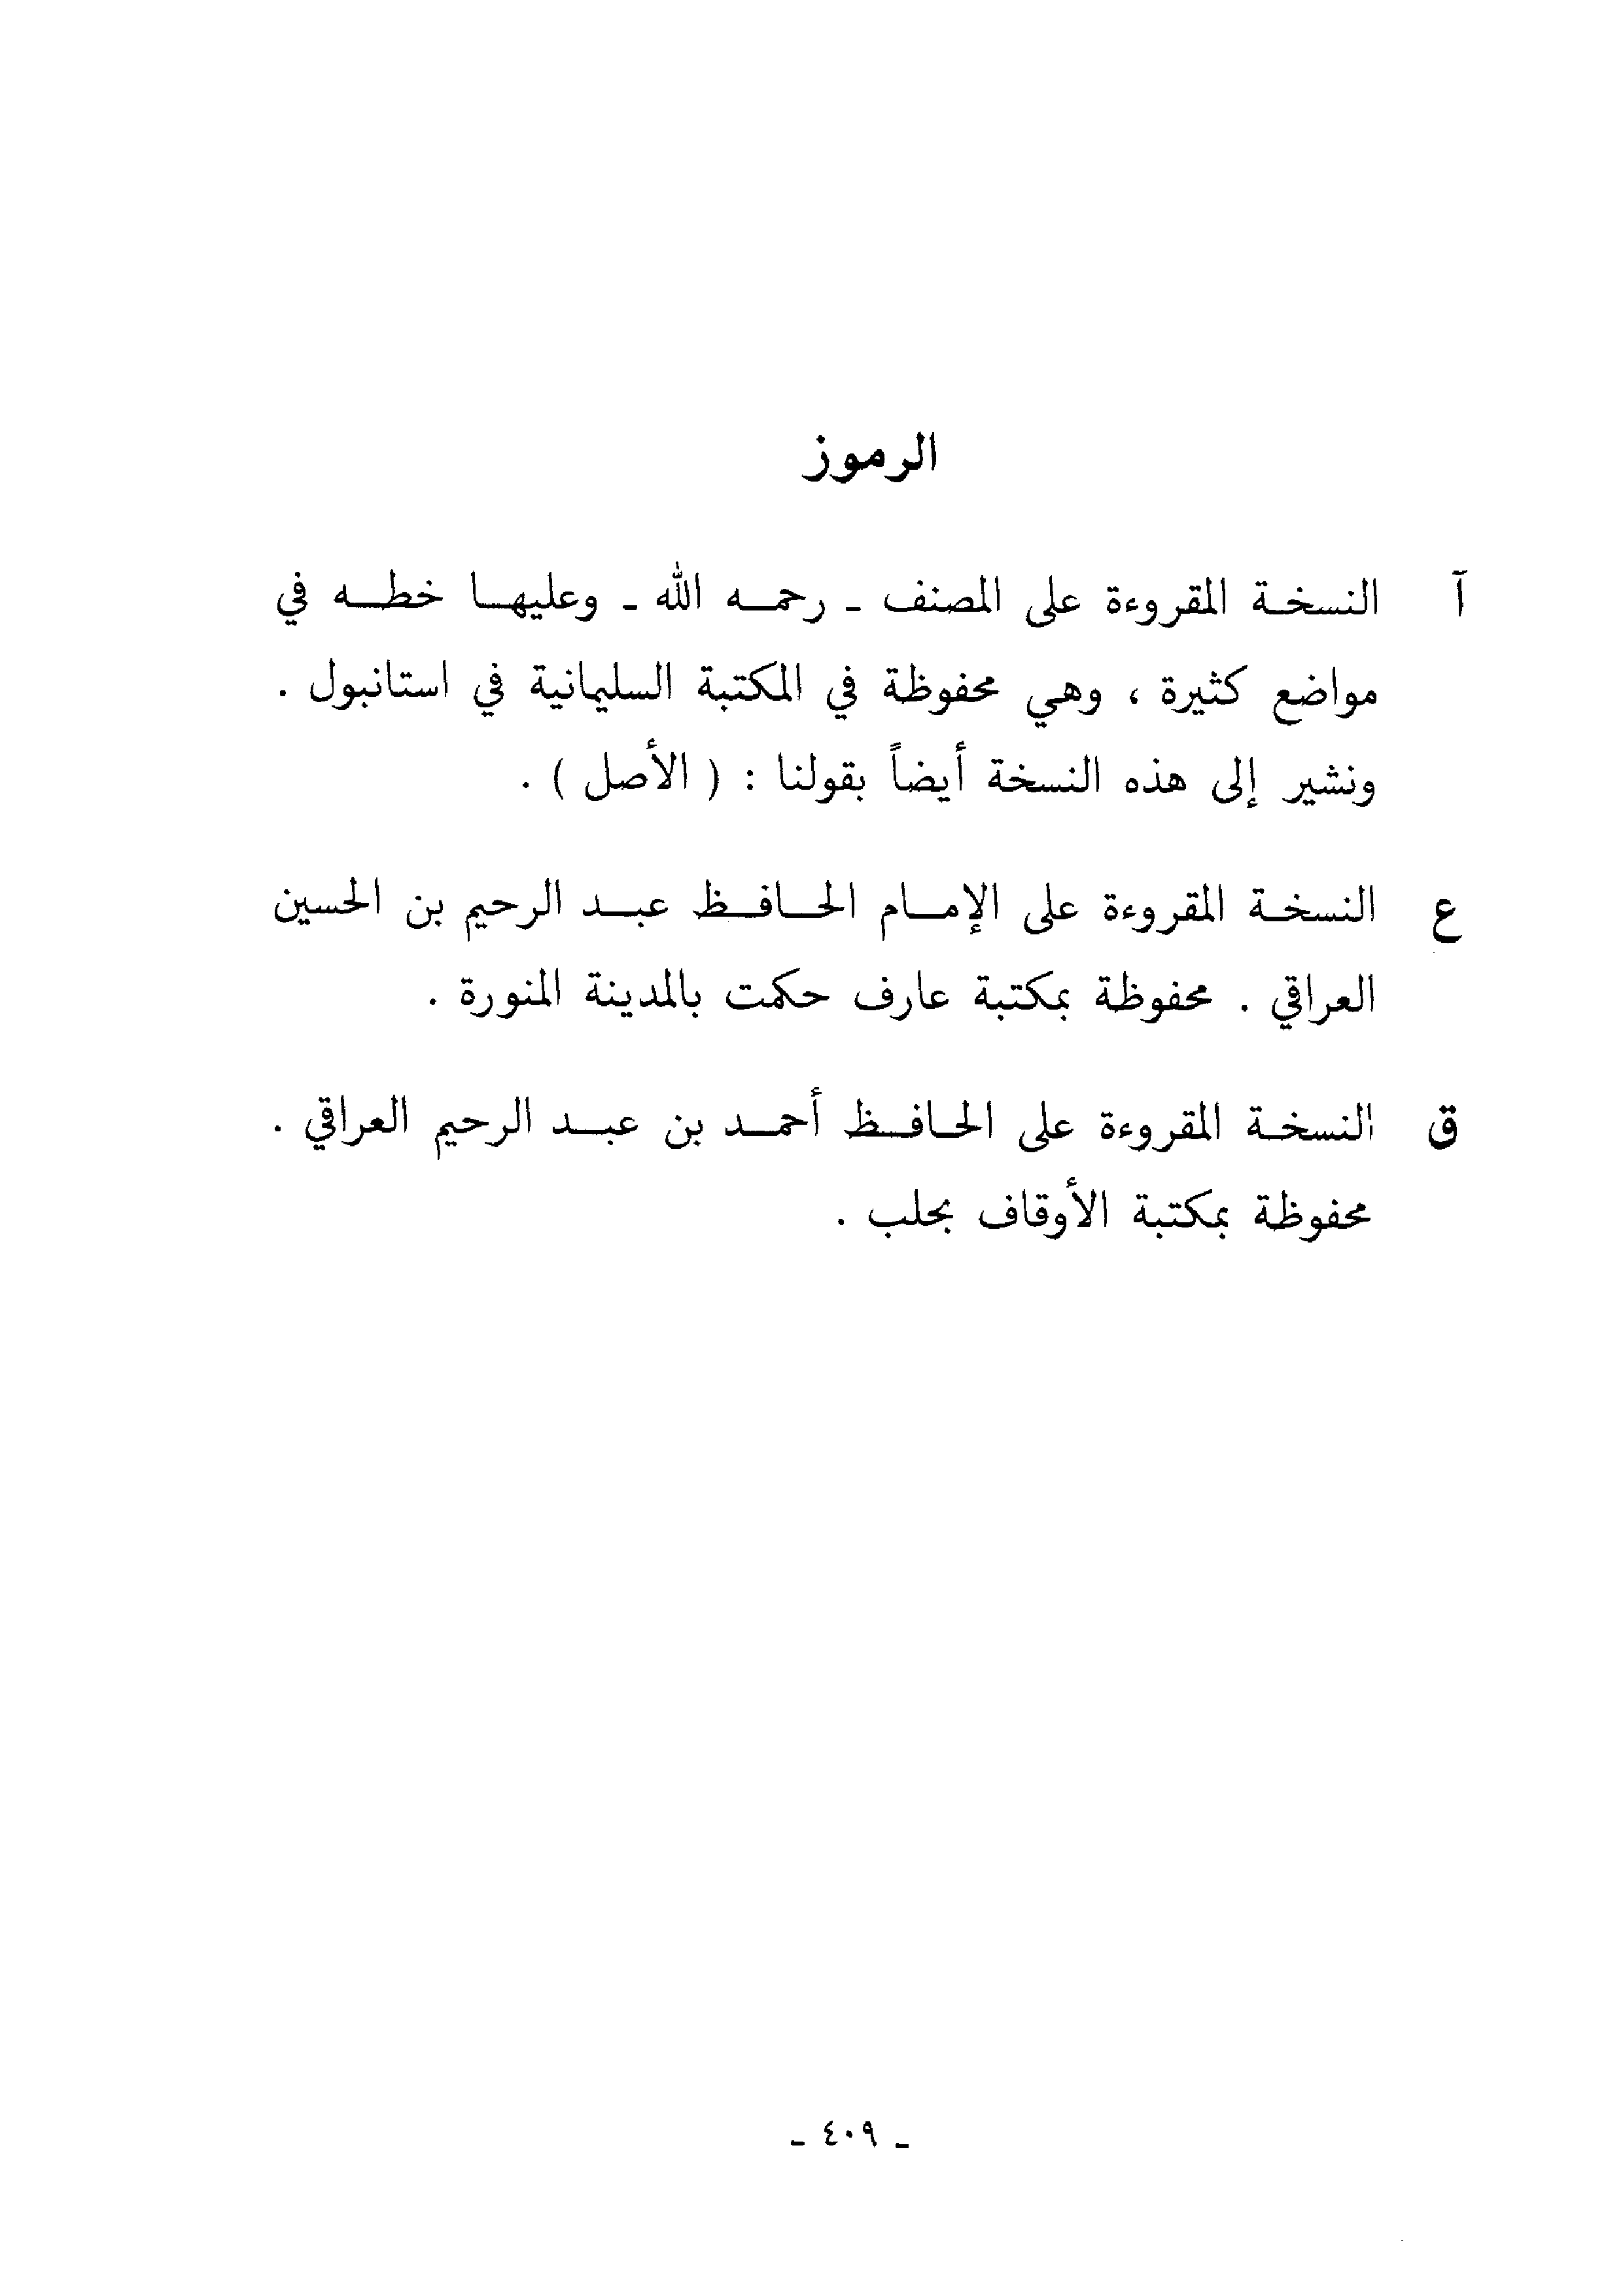 الرموز
آ النسخة المقروءة على المصنف ـ رحمه الله ـ وعليها خطه في
مواضع كثيرة ، وهي محفوظة في المكتبة السليمانية في استانبول .
ونشير إلى هذه النسخة أيضاً بقولنا : ( الأصل ) .
ع النسخة المقروءة على الإمام الحافظ عبد الرحيم بن الحسين
العراقي . محفوظة بمكتبة عارف حكمت بالمدينة المنورة .
ق النسخة المقروءة على الحافظ أحمد بن عبد الرحيم العراقي .
محفوظة بمكتبة الأوقاف بحلب .
ـ ٤٠٩ ـ